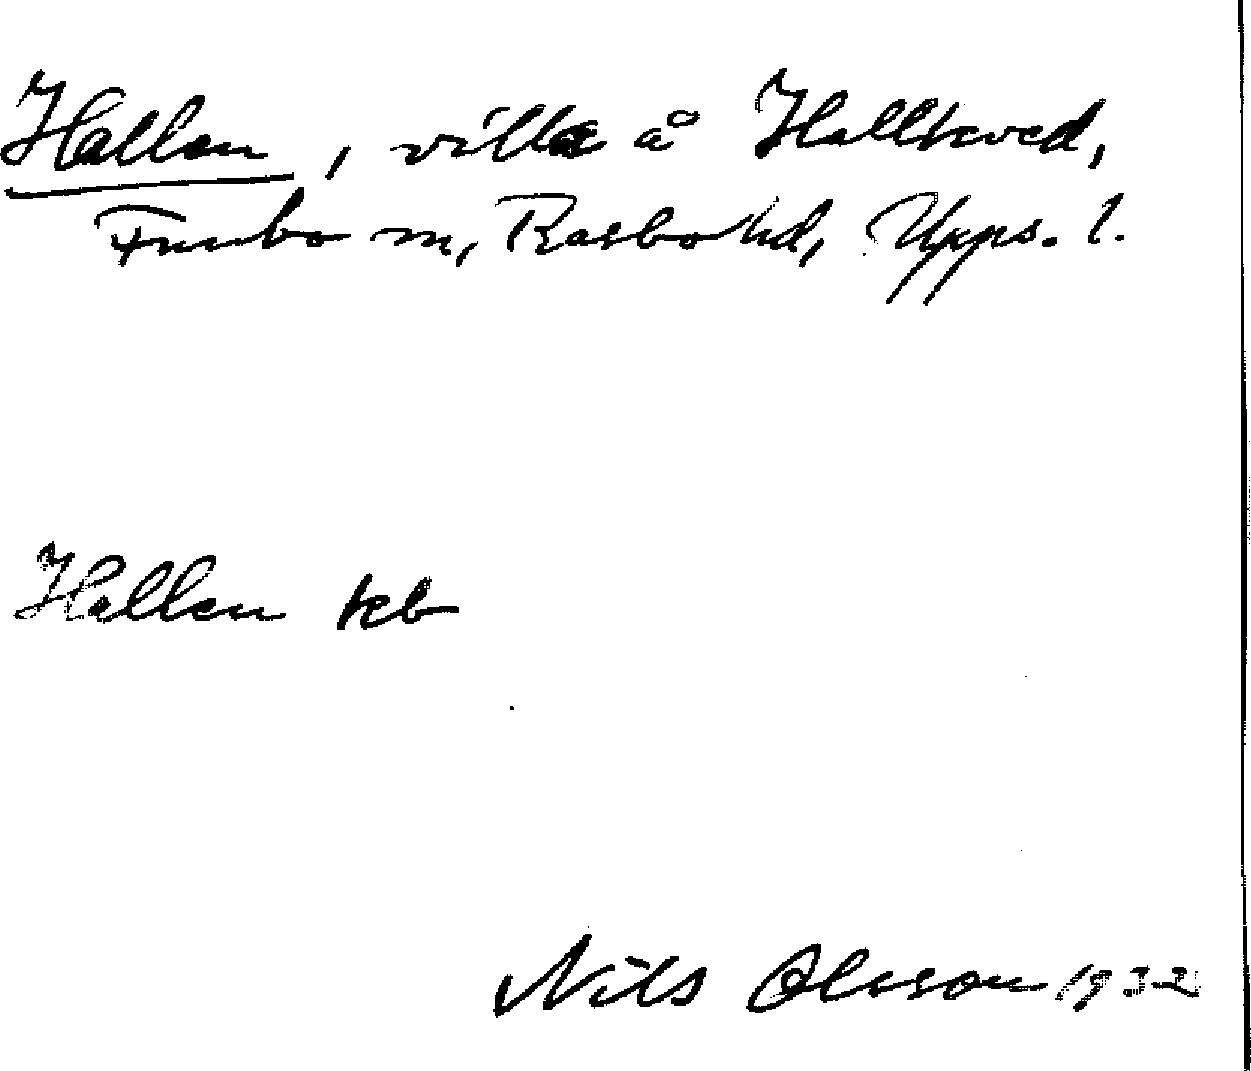 Hallen, villa å Hallkved,
Funbo sn, Rasbo hd, Upps. l.
Hallen kb
Nils Olsson 1932